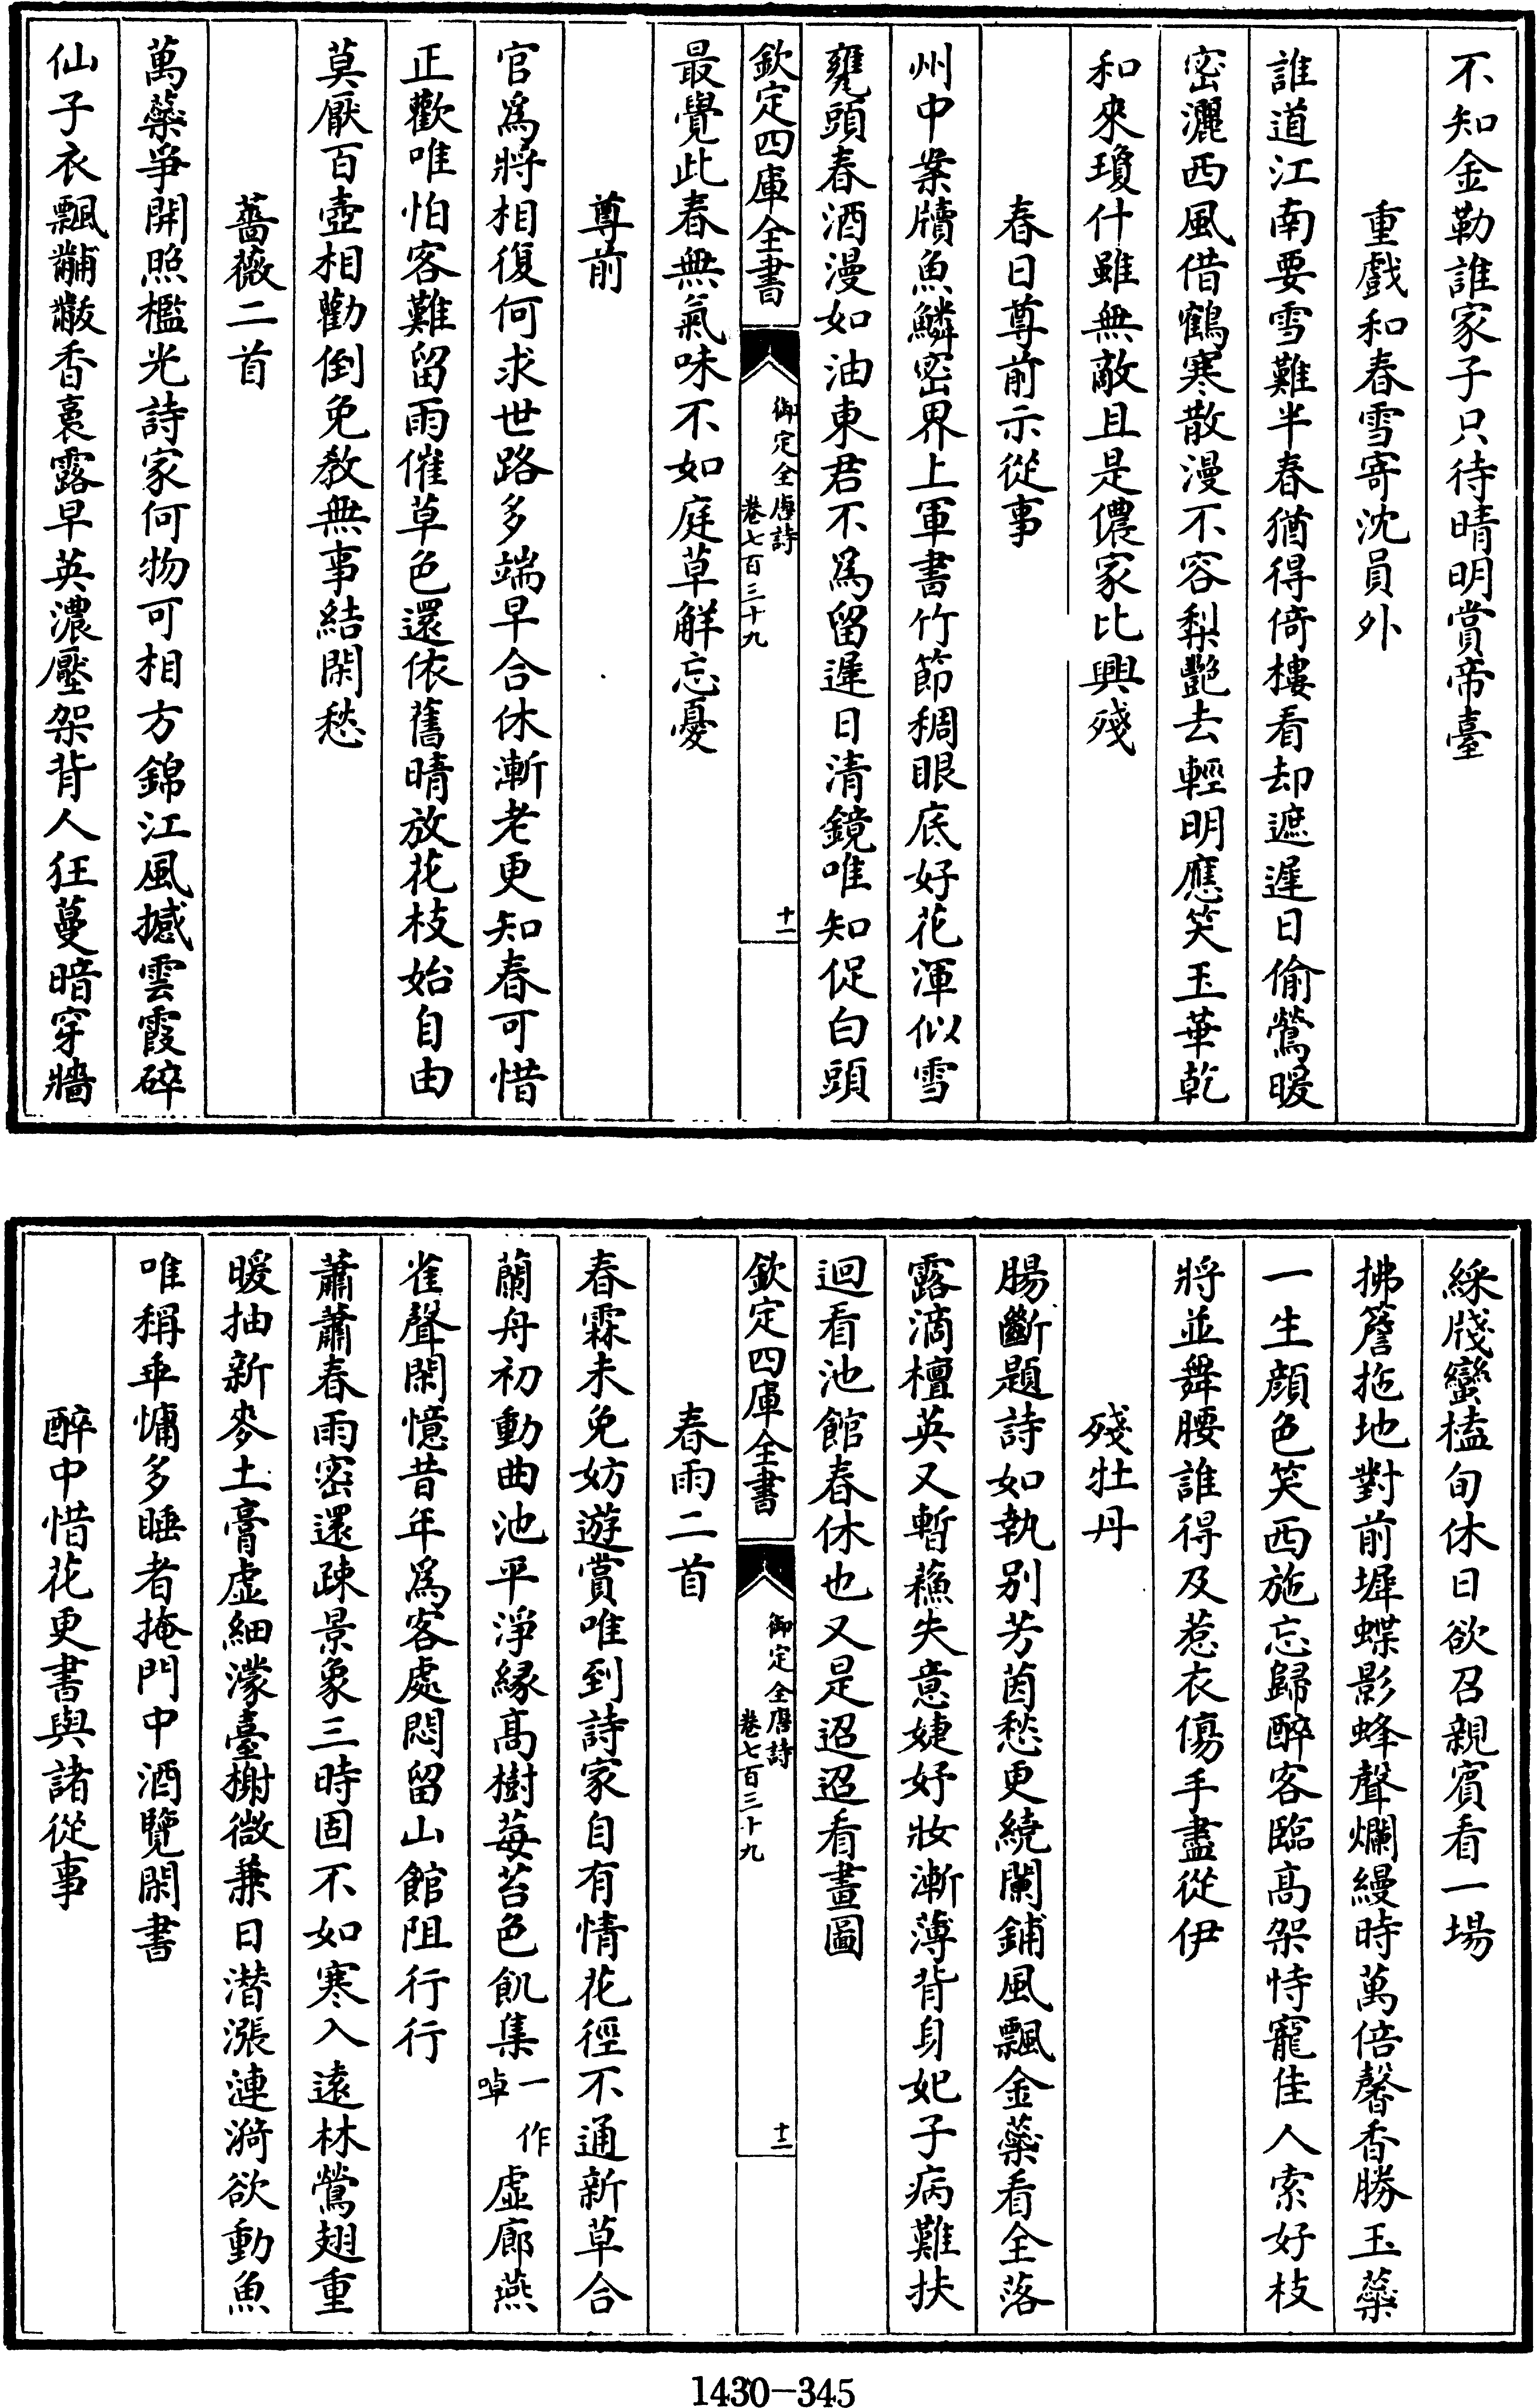 不知金勒誰家子只待晴明賞帝臺
重戲和春雪寄沈員外
誰道江南要雪難半春猶得倚樓看却遮遲日偷鶯暖
密灑西風借鶴寒散漫不容梨艷去輕明應笑玉華乾
和來瓊什雖無敵且是儂家比興殘
春日尊前示從事
州中案牘魚鱗密界上軍書竹節稠眼底好花渾似雪
甕頭春酒漫如油東君不為留遲日清鏡唯知促白頭
欽定四庫全書
御定全唐詩
卷七百三十九
十一
最覺此春無氣味不如庭草解忘憂
尊前
官為將相復何求世路多端早合休漸老更知春可惜
正歡唯怕客難留雨催草色還依舊晴放花枝始自由
莫厭百壺相勸倒免教無事結閑愁
薔薇二首
萬蘂爭開照檻光詩家何物可相方錦江風撼雲霞碎
仙子衣飄黼黻香裛露早英濃壓架背人狂蔓暗穿牆
綵牋蠻榼旬休日欲召親賓看一場
拂簷拖地對前墀蝶影蜂聲爛縵時萬倍馨香勝玉蘂
一生顔色笑西施忘歸醉客臨高架恃寵佳人索好枝
將並舞腰誰得及惹衣傷手盡從伊
殘牡丹
腸斷題詩如執别芳茵愁更繞闌鋪風飄金蘂看全落
露滴檀英又暫蘓失意婕妤妝漸薄背身妃子病難扶
迴看池館春休也又是迢迢看畫圖
欽定四庫全書
御定全唐詩
卷七百三十九
十二
春雨二首
春霖未免妨遊賞唯到詩家自有情花徑不通新草合
蘭舟初動曲池平淨緣高樹莓苔色飢集一作啅虛廊燕
雀聲閑憶昔年為客處悶留山館阻行行
蕭蕭春雨密還疎景象三時固不如寒入遠林鶯翅重
暖抽新麥土膏虛細濛臺榭微兼日潛漲漣漪欲動魚
唯稱乖慵多睡者掩門中酒覽閑書
醉中惜花更書與諸從事
1430-345